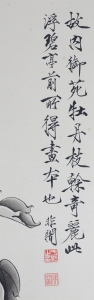 故内御苑牡丹枝幹奇麗此
浮碧亭前所得畫本也 非闇